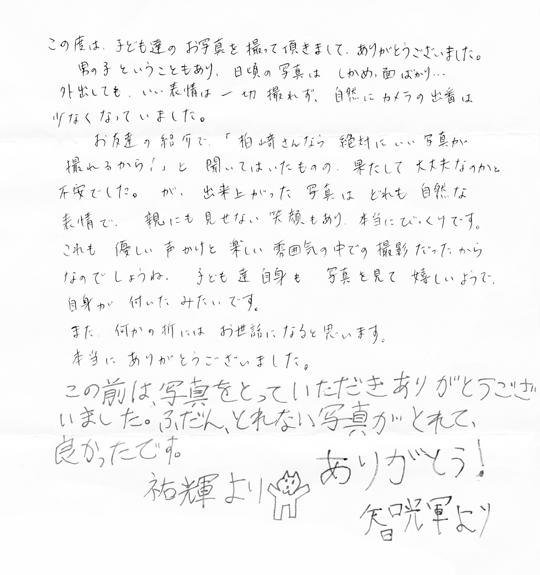 この度は、子ども達のお写真を撮って頂きまして、ありがとうございました。
男の子ということもあり、日頃の写真は しかめっ面ばかり…
外出しても、いい表情は一切撮れず、自然にカメラの出番は
少なくなっていました。
お友達の紹介で、「柏崎さんなら絶対にいい写真が
撮れるから！」と聞いてはいたものの、果たして大丈夫なのかと
不安でした。が、出来上がった写真はどれも自然な
表情で、親にも見せない笑顔もあり、本当にびっくりです。
これも優しい声かけと楽しい雰囲気の中での撮影だったから
なのでしょうね。子ども達自身も写真を見て嬉しいようで、
自身が付いたみたいです。
また、何かの折にはお世話になると思います。
本当にありがとうございました。
この前は、写真をとっていただきありがとうござ
いました。ふだん、とれない写真がとれて、
良かったです。
祐輝より
ありがとう！
智晄より